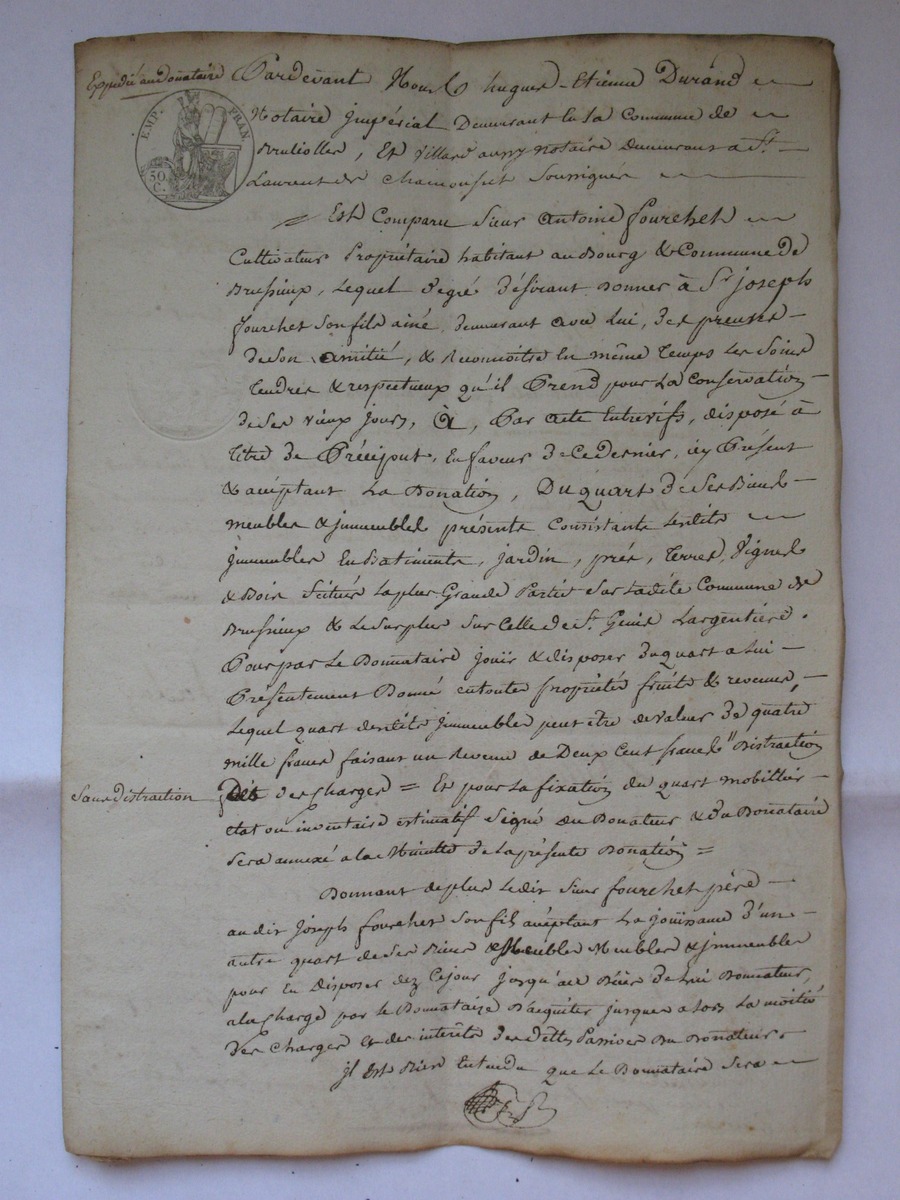 Expédié au Donataire
EMP. FRAN
50 C.
Pardevant Nous hugues-Etienne Durand
Notaire jmpérial Demeurant en la Commune de
Brulliolles, Et Villard aussy notaire demeurant a St.
Laurent de Chamousset Soussignés
Est Comparu Sieur antoine fourchet
Cultivateur Propriétaire habitant au Bourg & Commune De
Brussieux, Lequel de gré Désirant Donner à Sr. joseph
fourchet son fils ainé, demeurant avec Lui, des preuves
de Son amitié, & Reconnoitre En même temps Les Soins
tendres & respectueux qu'il Prend pour La Conservation
de Ses vieux jours, à, Par acte Entrevifs, disposé à
titre de Préciput, En faveur De Ce dernier, icy Présent
& acceptant La Donation, Du quart De Ses Biens
meubles & jmmeubles présents Consistants Lesdits
jmmeubles En Batiments, jardin, prés, terres, Vignes
& Bois Scitués La plus Grande Partie Sur Ladite Commune de
Brussieux & Le Surplus Sur Celle de St. Genis Largentiere.
Pour par Le Donnataire jouir & disposer du quart a Lui
Présentement Donné en toute propriété fruits & revenus,
Lequel quart desdits jmmeubles peut être de valeur De quatre
mille francs faisant un Revenu de Deux Cent francs Distraction
Sans distraction
des Charges = Et pour La fixation du quart mobillier
état ou inventaire estimatif Signé du Donateur & du Donataire
Sera annexé a la Minutte de La présente Donation =
Donnant de plus Ledit Sieur fourchet père
audit joseph fourchet Son fils acceptant La jouissance D'un
autre quart de Ses Biens Meubles & jmmeubles
pour En Disposer dez Ce jour jusqu'au déces de Lui Donnateur,
a la Charge par le Donnataire D'aquiter jusques alors La moitié
Des Charges Et des interêts des dettes Passives Du Donateur.
jl Est Bien Entendu que Le Donnataire Sera